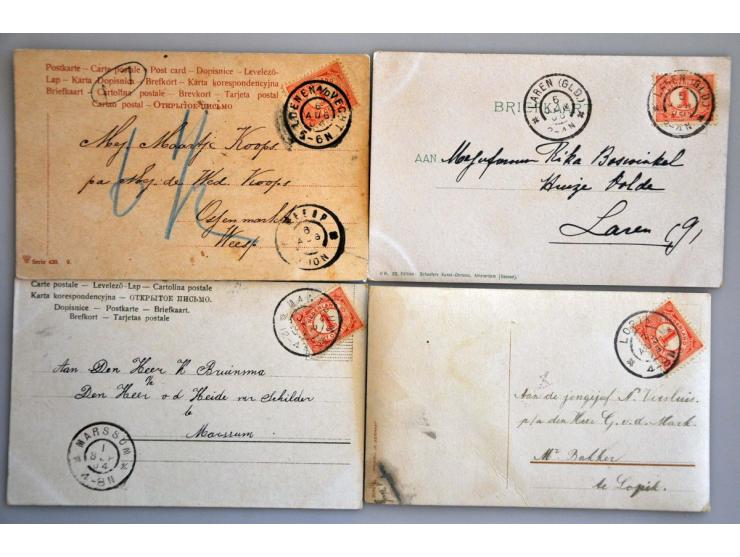 Postkarte – Carte postale – Post card – Dopisnice – Levelező-
Lap – Karta Dopisnica – Brefkort – Karta korespondencyjna
Briefkaart – Cartolina postale – Brevkort – Tarjeta postal
Cartao postal – ОТКРЫТОЕ ПИСЬМО
LOENEN A/D VECHT
5-6N
Mej. Maartje Koops.
pa Mej. de Wed. Koops
Ossenmarkt
Weesp
WEESP
Serie 430. 9.
LAREN (GLD.)
LAREN (GLD.)
1
BRI KAA
AAN
Mejufvrouw Rika Boswinkel
Huize Volde
Laren (G)
Carte postale – Levelező-Lap – Cartolina postale
Karta korespondencyjna – ОТКРЫТОЕ ПИСЬМО.
Dopisnice – Postkarte – Briefkaart.
Brefkort – Tarjetas postale
Aan Den Heer K Bruinsma
p/a
Den Heer v.d Heide mr Schilder
te
Marssum
MARSSUM
4-8N
1
Aan de jongejuf N. Versluis.
p/a den Heer G. v. d. Mark.
Mr Bakker
te Lopik.